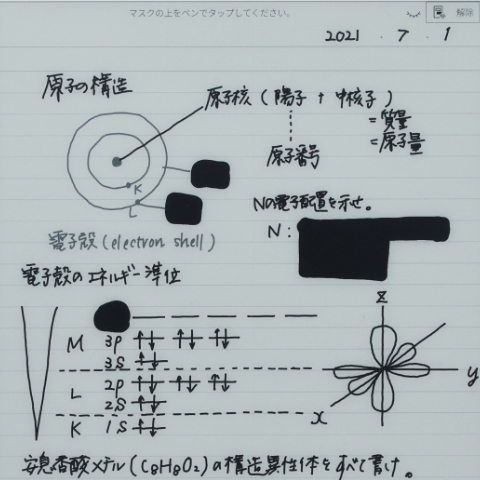 マスクの上をペンでタップしてください。
解除
2021 . 7 . 1
原子の構造
原子核 ( 陽子 + 中核子 )
= 質量
= 原子量
原子番号
K
L
Nの電子配置を示せ。
N :
電子殻 (electron shell)
電子殻のエネルギー準位
M 3p
3s
L 2p
2s
K 1s
z
y
x
安息香酸メチル (C8H8O2) の構造異性体をすべて書け。